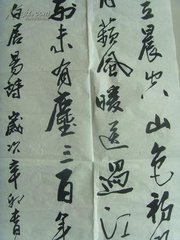 立晨山色初
月蘋風暖送過江
前未有塵三百年
白居易詩 歲次辛卯春